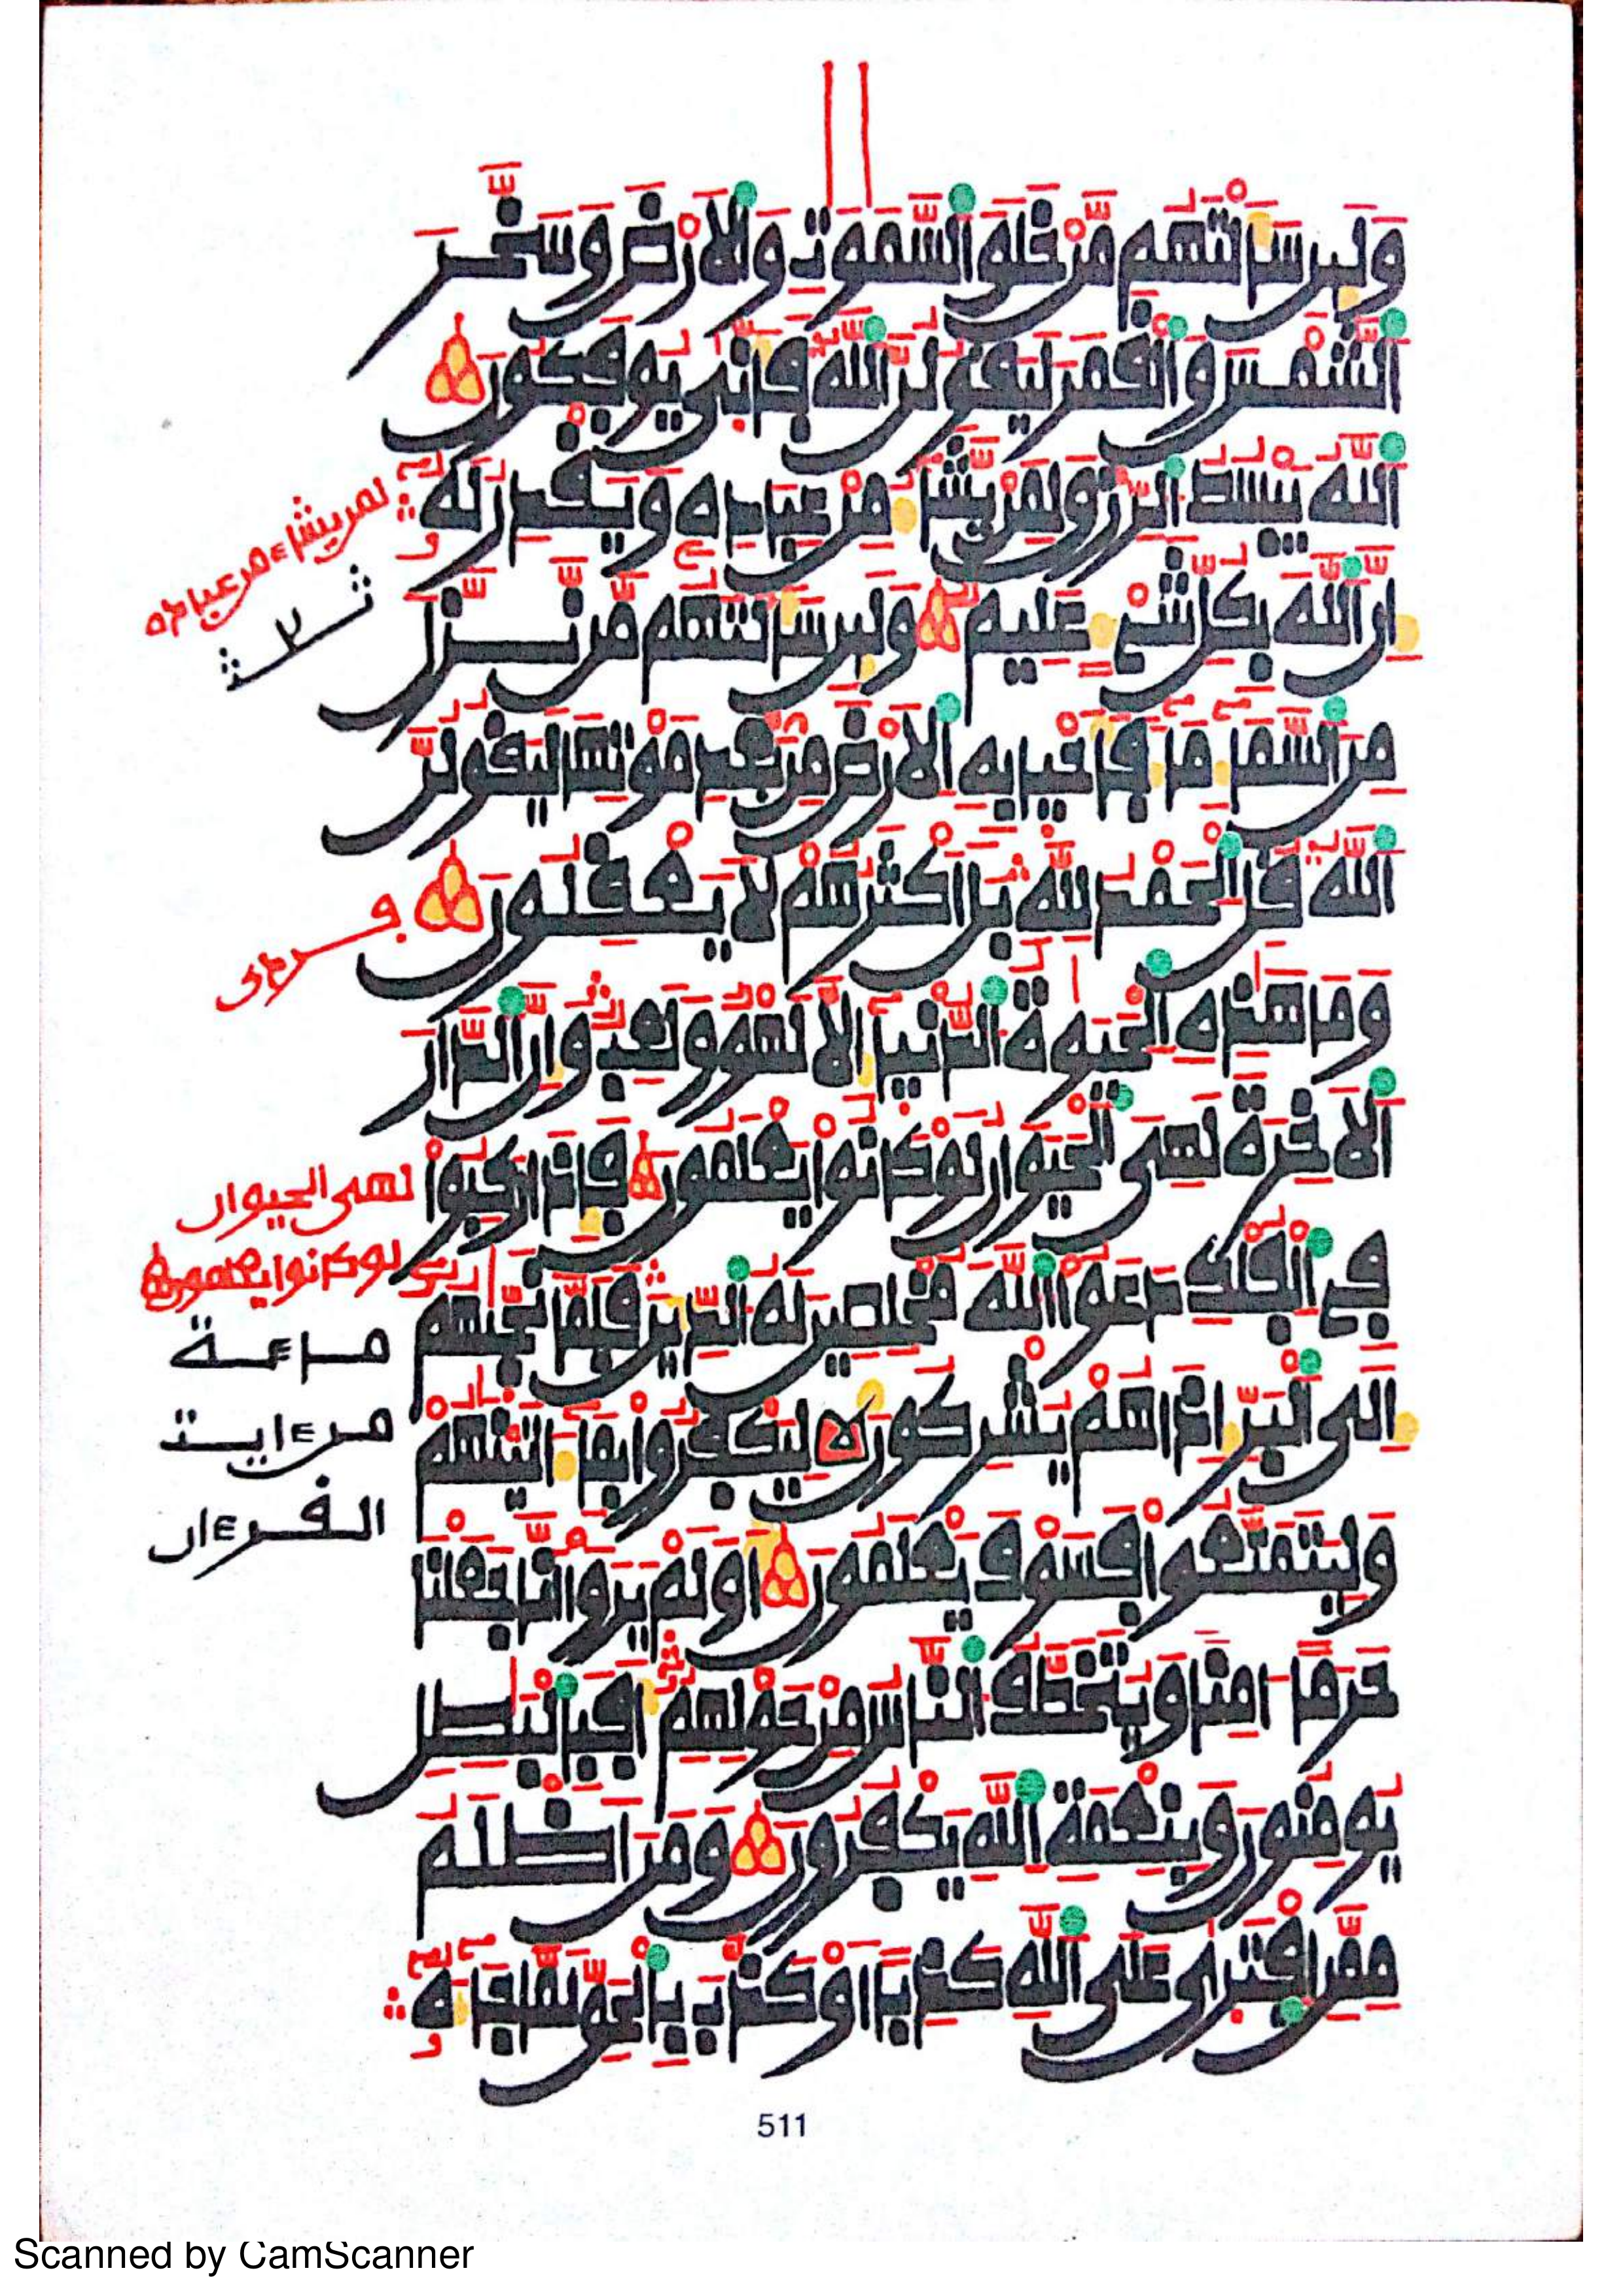 وَلَئِن سَأَلْتَهُم مَّنْ خَلَقَ السَّمَوَتِ وَالَارْضَ وَسَخَّرَ
الشَّمْسَ وَالْقَمَرَ لَيَقُولُنَّ اللَّهُ فَأَنَّى يُوفَكُونَ
اللَّهُ يَبْسُطُ الرِّزْقَ لِمَنْ يَّشَاءُ مِنْ عِبَادِهِ وَيَقْدِرُ لَهُ
إِنَّ اللَّهَ بِكُلِّ شَيْءٍ عَلِيمٌ وَلَئِن سَأَلْتَهُم مَّن نَّزَّلَ
مِنَ السَّمَاءِ مَاءً فَأَحْيَا بِهِ الَارْضَ مِنْ بَعْدِ مَوْتِهَا لَيَقُولُنَّ
اللَّهُ قُلِ الْحَمْدُ لِلَّهِ بَلَ اكْثَرُهُمْ لَا يَعْقِلُونَ
وَمَا هَذِهِ الْحَيَوةُ الدُّنْيَا إِلَّا لَهْوٌ وَلَعِبٌ وَإِنَّ الدَّارَ
الَاخِرَةَ لَهِيَ الْحَيَوَانُ لَوْ كَانُوا يَعْلَمُونَ فَإِذَا رَكِبُوا
فِي الْفُلْكِ دَعَوُا اللَّهَ مُخْلِصِينَ لَهُ الدِّينَ فَلَمَّا نَجَّيهُمُ
إِلَى الْبَرِّ إِذَا هُمْ يُشْرِكُونَ لِيَكْفُرُوا بِمَا ءَاتَيْنَهُمْ
وَلِيَتَمَتَّعُوا فَسَوْفَ يَعْلَمُونَ أَوَلَمْ يَرَوَا انَّا جَعَلْنَا
حَرَمًا ءَامِنًا وَيُتَخَطَّفُ النَّاسُ مِنْ حَوْلِهِمُ أَفَبِالْبَطِلِ
يُومِنُونَ وَبِنِعْمَةِ اللَّهِ يَكْفُرُونَ وَمَنَ اظْلَمُ
مِمَّنِ افْتَرَى عَلَى اللَّهِ كَذِبًا اَوْ كَذَّبَ بِالْحَقِّ لَمَّا جَاءَهُ
لمن يشاء من عباده
لهى الحيوان
لو كانوا يعلمون
مائة
من ءايت
القرءان
511
Scanned by CamScanner